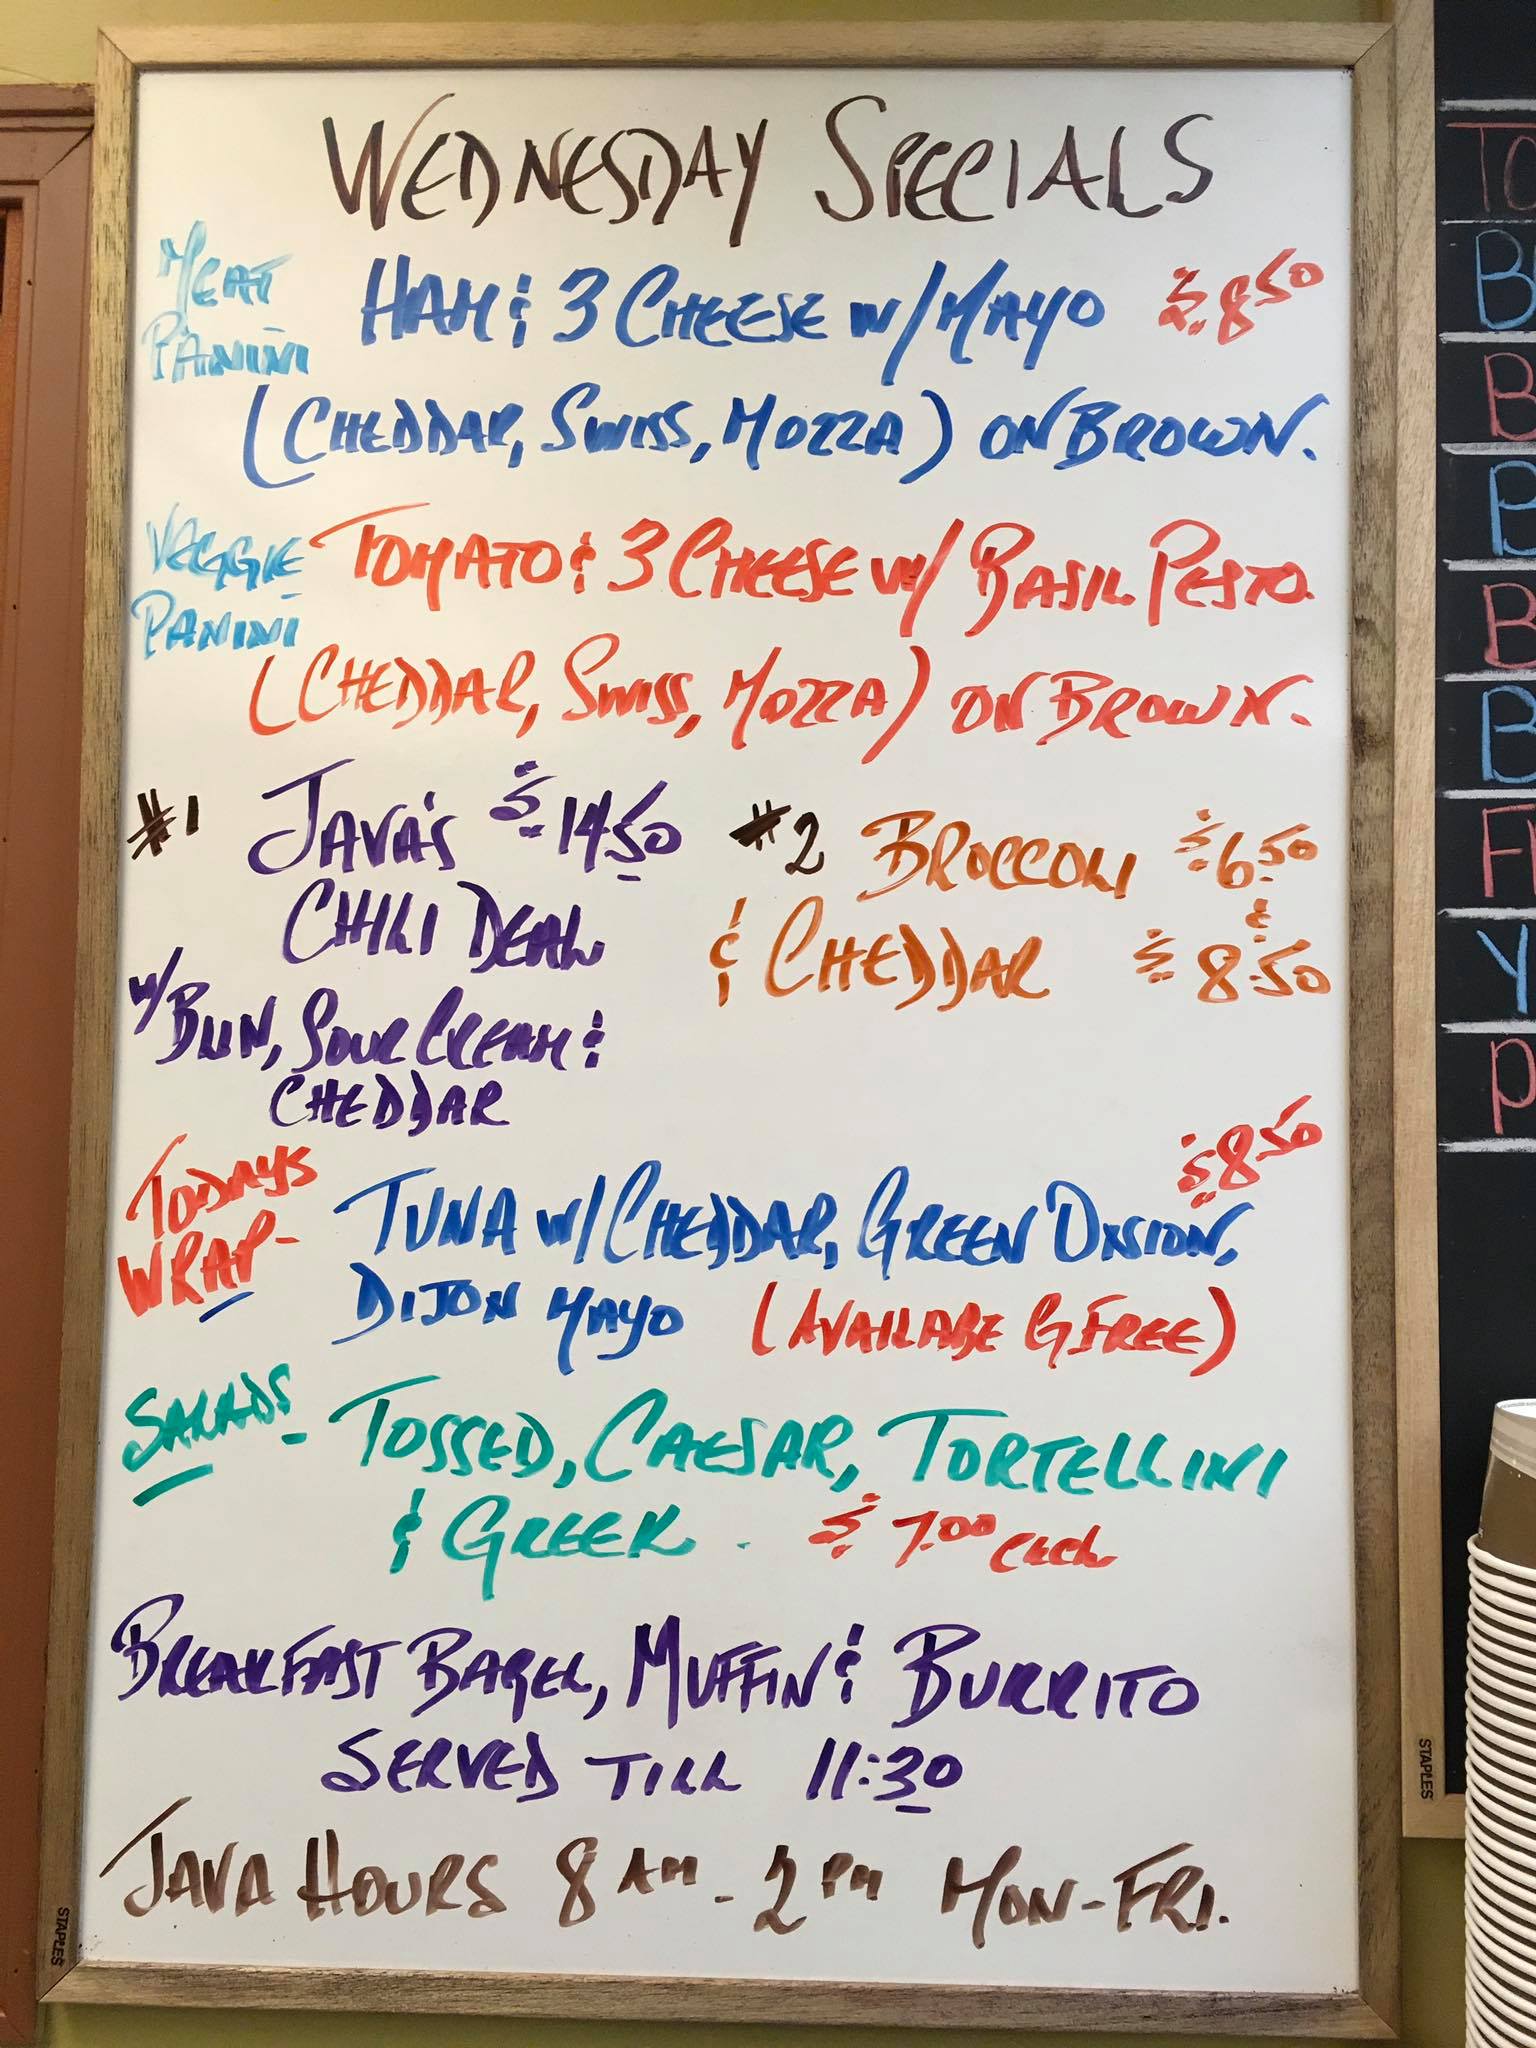 WEDNESDAY SPECIALS
MEAT PANINI HAM & 3 CHEESE W/MAYO $8.50
(CHEDDAR, SWISS, MOZZA) ON BROWN.
VEGGIE PANINI TOMATO & 3 CHEESE W/ BASIL PESTO.
(CHEDDAR, SWISS, MOZZA) ON BROWN.
#1 JAVA'S $14.50
CHILI DEAL
W/ BUN, SOUR CREAM &
CHEDDAR
#2 BROCCOLI $6.50
& CHEDDAR & $8.50
TODAYS WRAP- TUNA W/ CHEDDAR, GREEN ONSION, $8.50
DIJON MAYO (AVAILABE G FREE)
SALADS - TOSSED, CAESAR, TORTELLINI
& GREEK. $7.00 each
BREAKFAST BAGEL, MUFFIN & BURRITO
SERVED TILL 11:30
JAVA HOURS 8 AM - 2 PM MON-FRI.
STAPLES
STAPLES
TO
B
B
P
B
B
FI
Y
P